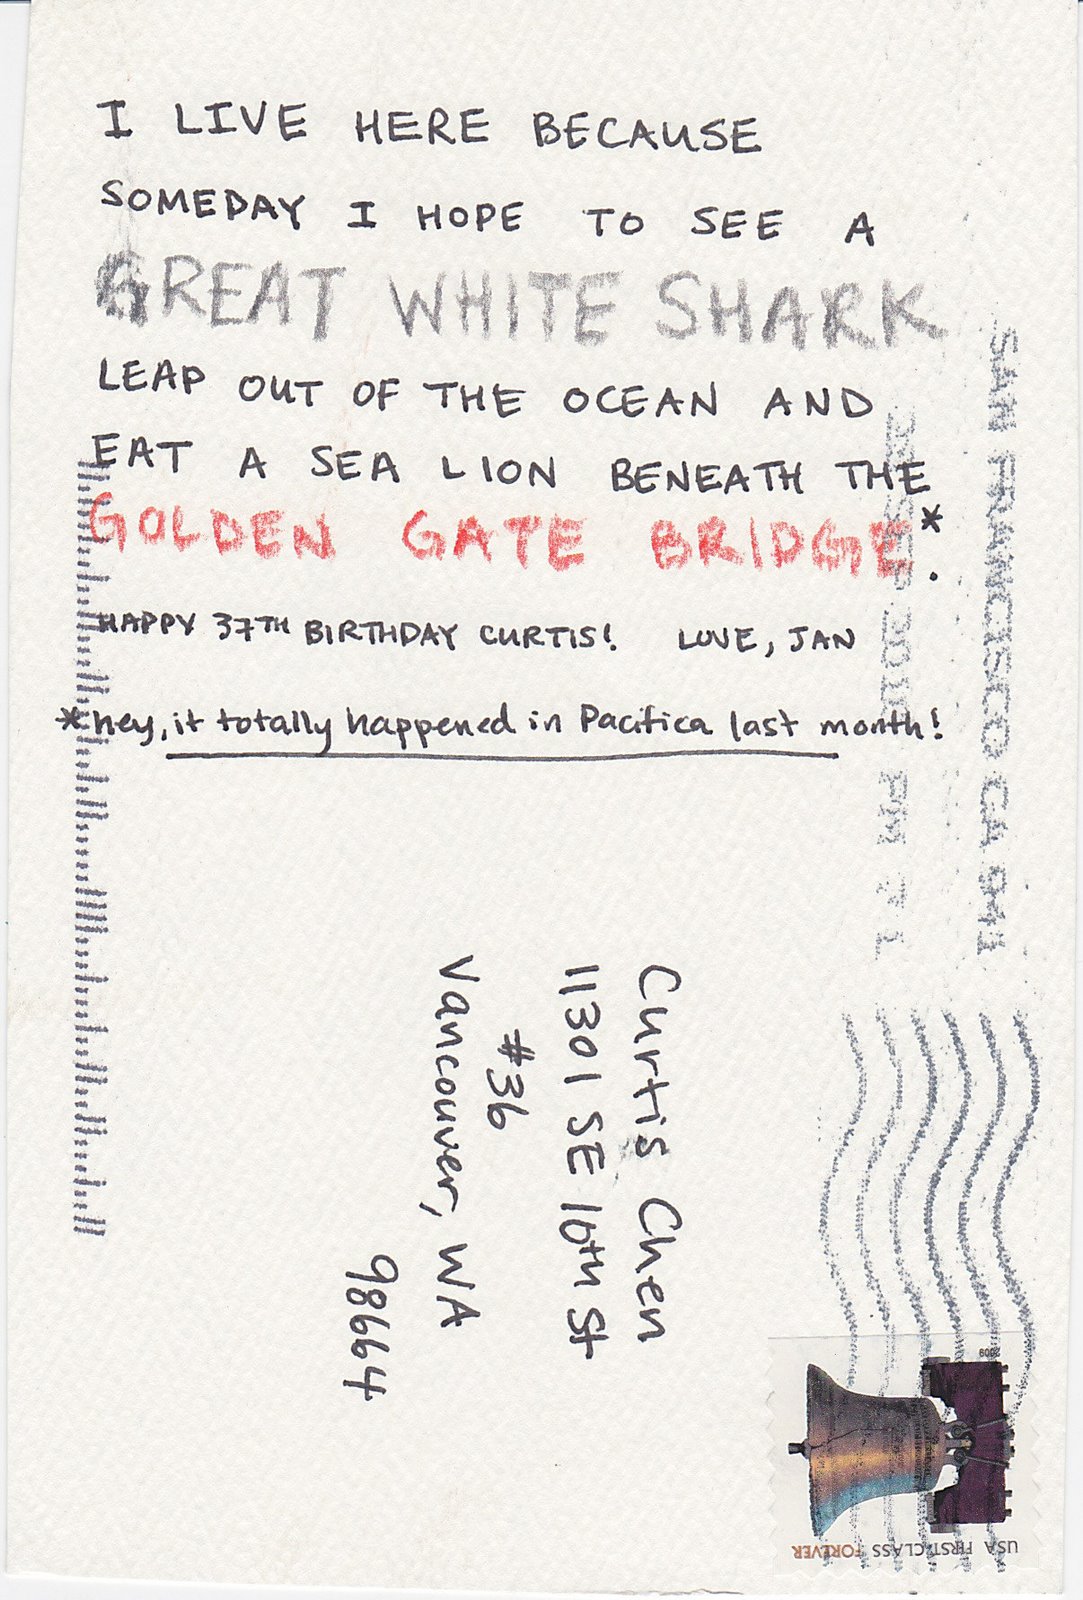 I LIVE HERE BECAUSE
SOMEDAY I HOPE TO SEE A
GREAT WHITE SHARK
LEAP OUT OF THE OCEAN AND
EAT A SEA LION BENEATH THE
GOLDEN GATE BRIDGE*.
HAPPY 37TH BIRTHDAY CURTIS! LOVE, JAN
*hey, it totally happened in Pacifica last month!
SAN FRANCISCO CA 941
SEP 2010 PM 7 L
Curtis Chen
11301 SE 10th St
#36
Vancouver, WA
98664
2009
USA FIRST-CLASS FOREVER